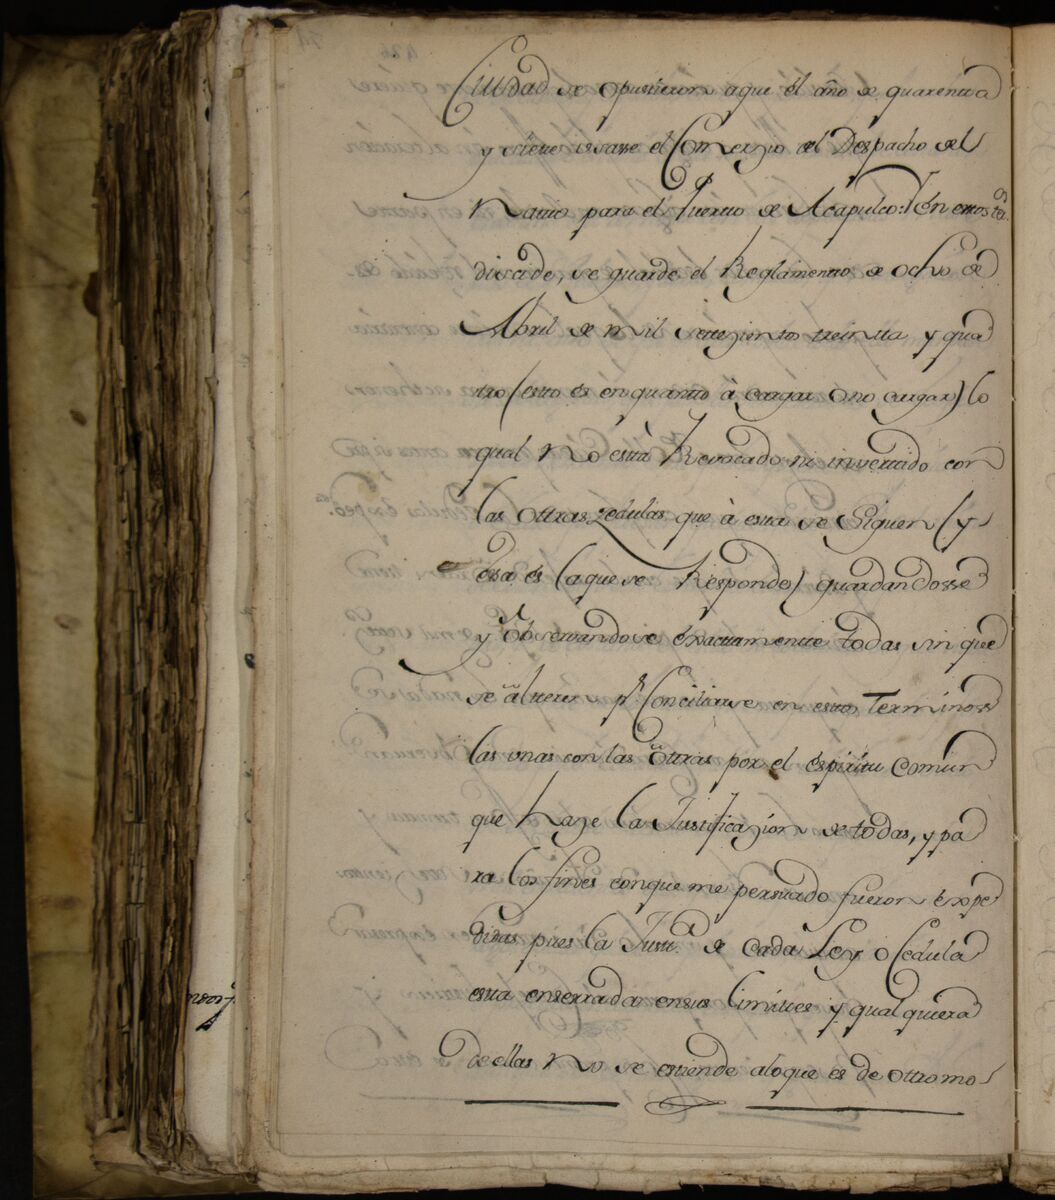 Ciudad se opusieron a que él año de quarenta
y siete usasse el Comerzio el Despacho del
Natio para el Puerto de Acapulco: En estos ter.os
diside, se guarde el Reglamento de ocho de
Abril de mil setezientos treintta y qua
tro (esto és en quantto à cargar ó no cargar) lo
qual no està Revocado ni invertido con
las ottras zedulas que à esta se siguen (y
esa és (a que se Respondo) guardandosse
y Observandose exactamente todas sin que
se alteren pr. Conciliarse en estos Terminos
las unas con las Ottras por el éspiritu comun
que haze la Justificazion de todas, y pa
ra los fines con que me persuado fueron expe
didas pues la Justt.a de cada Ley ó Cedula
esta enserrada en sus limittes y qual quiera
de ellas no se estiende a lo que es de ottro mo